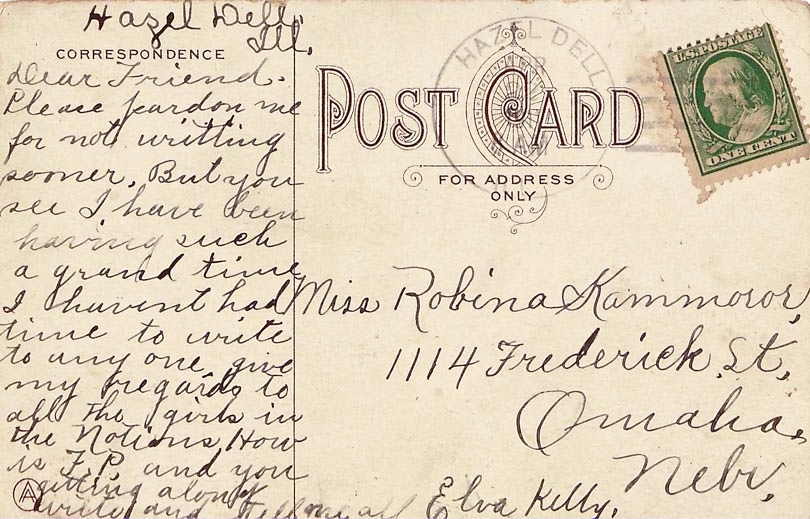 Hazel Dell,
Ill.
CORRESPONDENCE
Dear Friend.
Please pardon me
for not writting
sooner, But you
see I have been
having such
a grand time
I havent had
time to write
to any one, give
my regards to
all the girls in
the Notions, How
is F.P. and you
getting along
write and tell me all
Elva Kelly,
HAZEL DELL
POST CARD
FOR ADDRESS
ONLY
U.S. POSTAGE
ONE CENT
Miss Robina Kammoror,
1114 Frederick St,
Omaha,
Nebr,
A